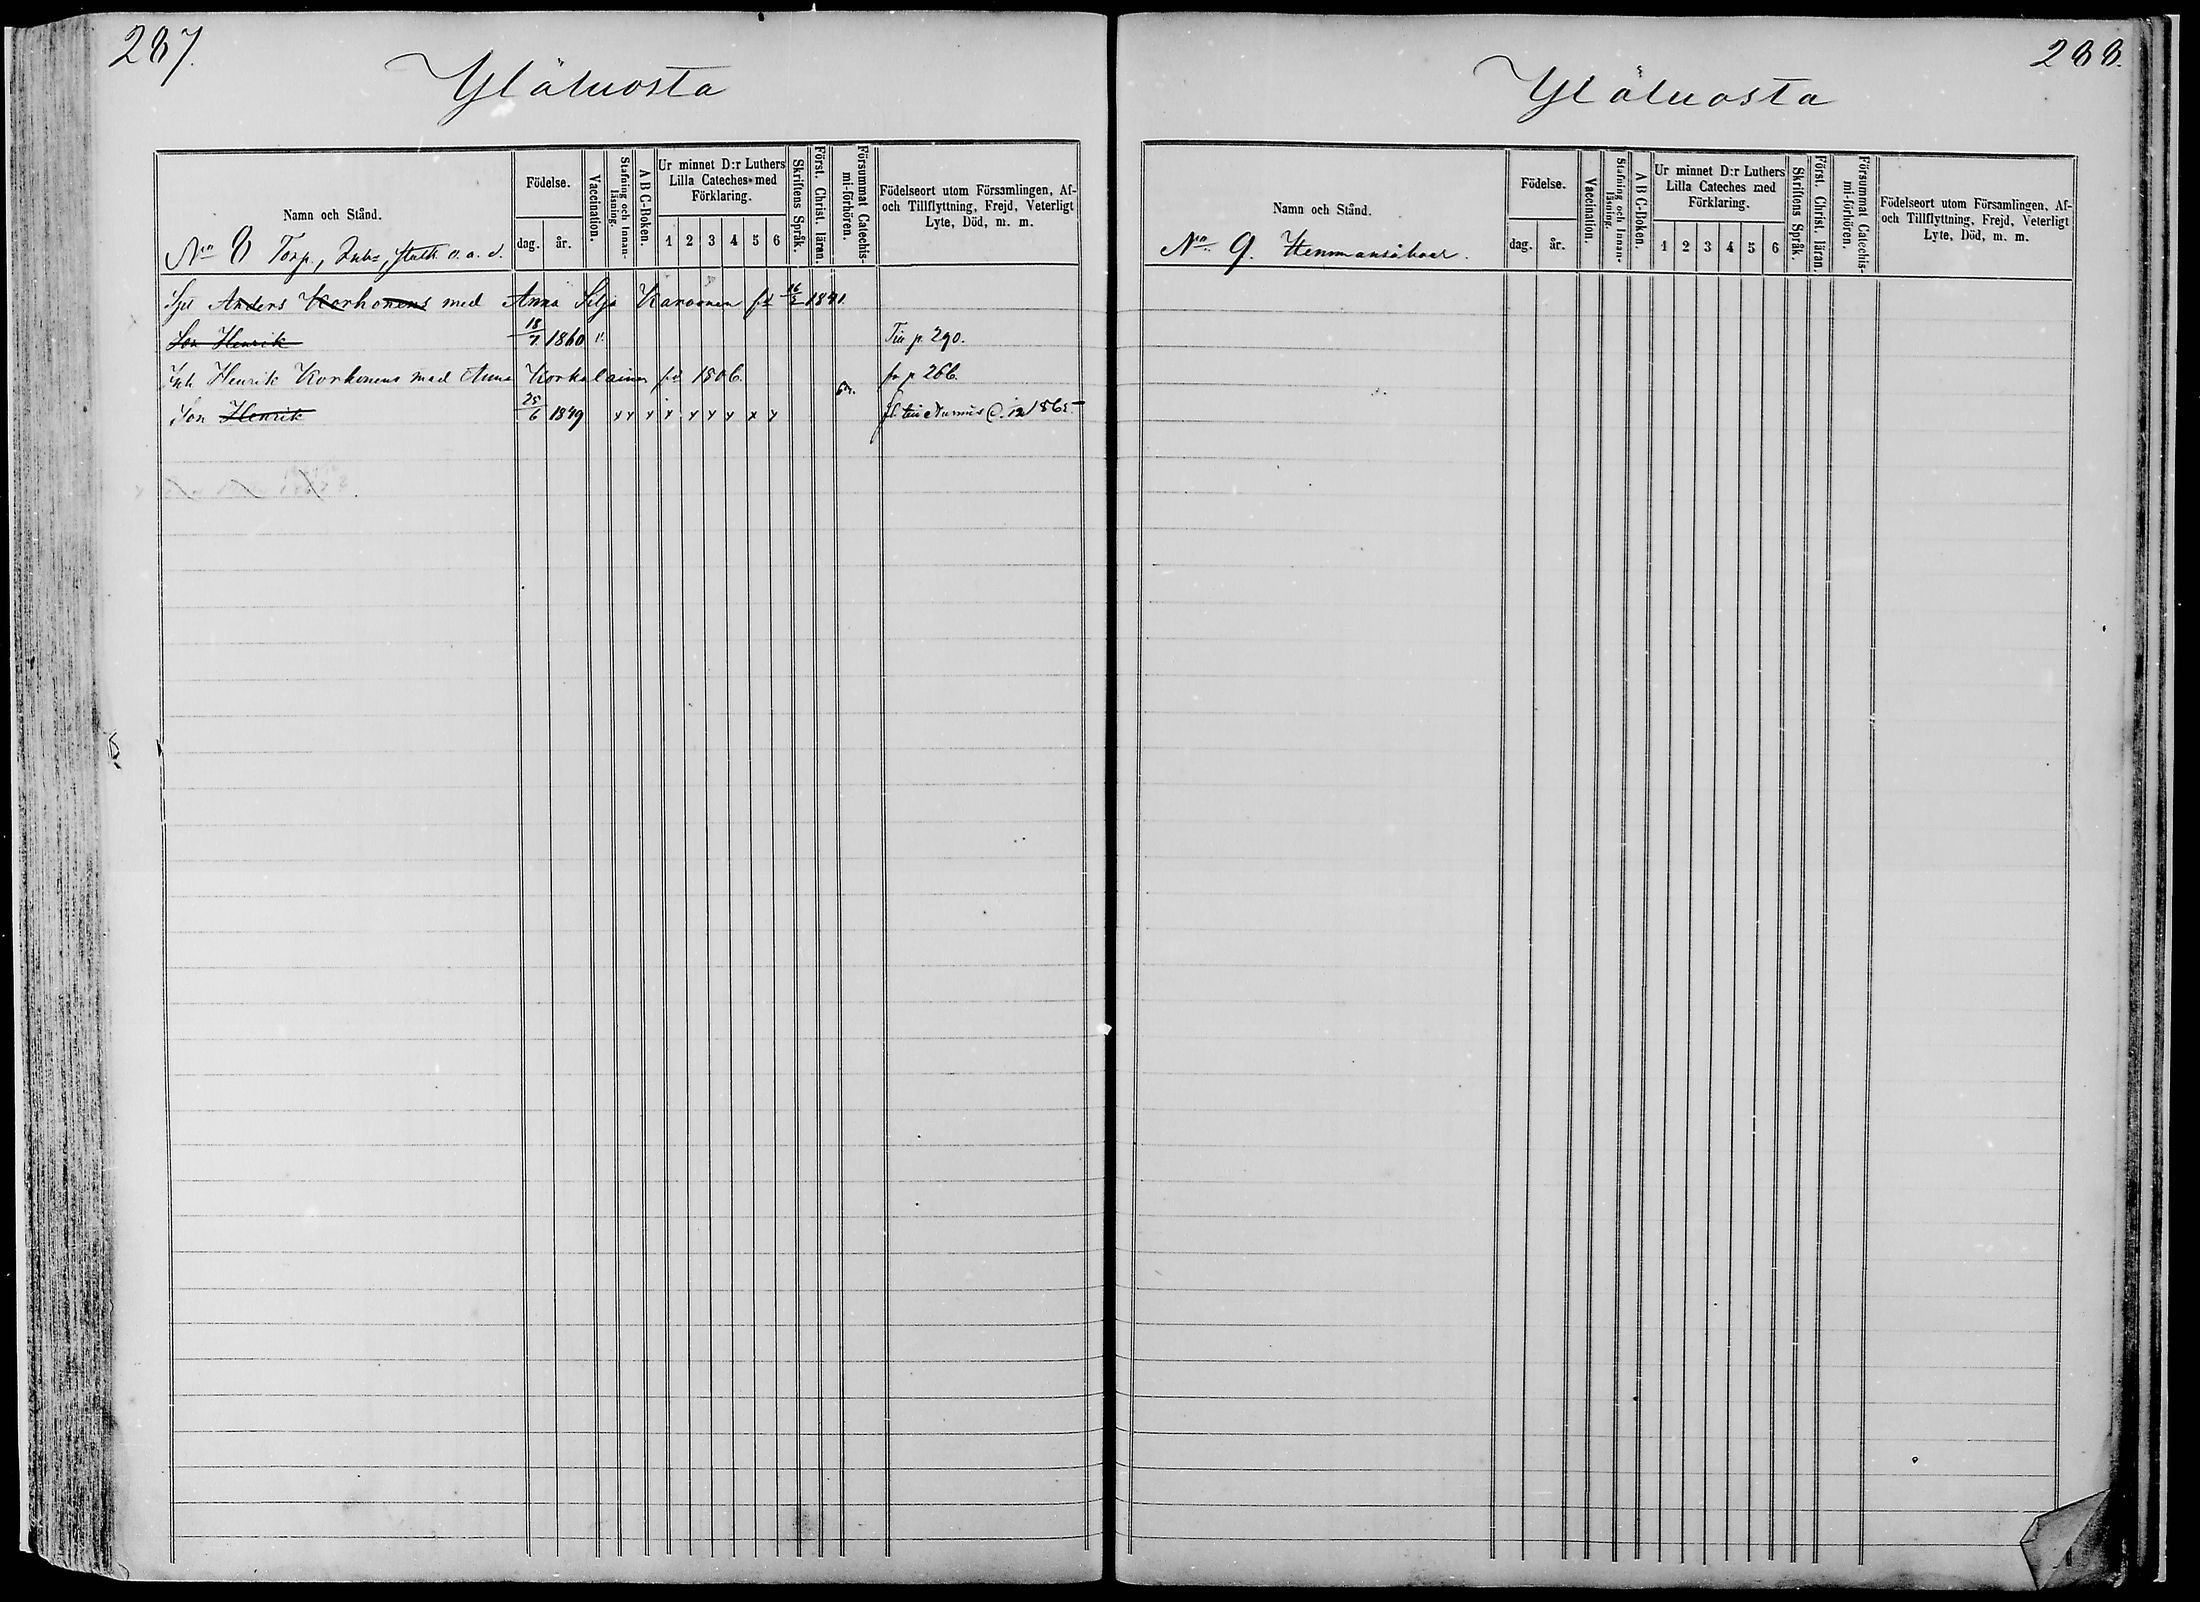 287.
Yläluosta
Namn och Stånd.
Födelse.
dag. år.
Vaccination.
Stafning och Innanläsning.
A B C-Boken.
Ur minnet D:r Luthers Lilla Cateches med Förklaring.
1 2 3 4 5 6
Skriftens Språk.
Först. Christ. läran.
Försummat Catechismi-förhören.
Födelseort utom Församlingen, Af- och Tillflyttning, Frejd, Veterligt Lyte, Död, m. m.
No 8 Torp., Inh., o. a. d.
Anders Korhonens med Anna Silja Karvonen 1841.
Son Henrik 18/7 1860 p. 290.
Inh Henrik Korhonens med Anna Korkalainen fd 1806. fr p 266.
Son Henrik 25/6 1849 x x x x x x x x x 1865
288.
Yläluosta
Namn och Stånd.
Födelse.
dag. år.
Vaccination.
Stafning och Innanläsning.
A B C-Boken.
Ur minnet D:r Luthers Lilla Cateches med Förklaring.
1 2 3 4 5 6
Skriftens Språk
Först. Christ. läran.
Försummat Catechismi-förhören.
Födelseort utom Församlingen, Af- och Tillflyttning, Frejd, Veterligt Lyte, Död, m. m.
No 9. Hemmansåboer.